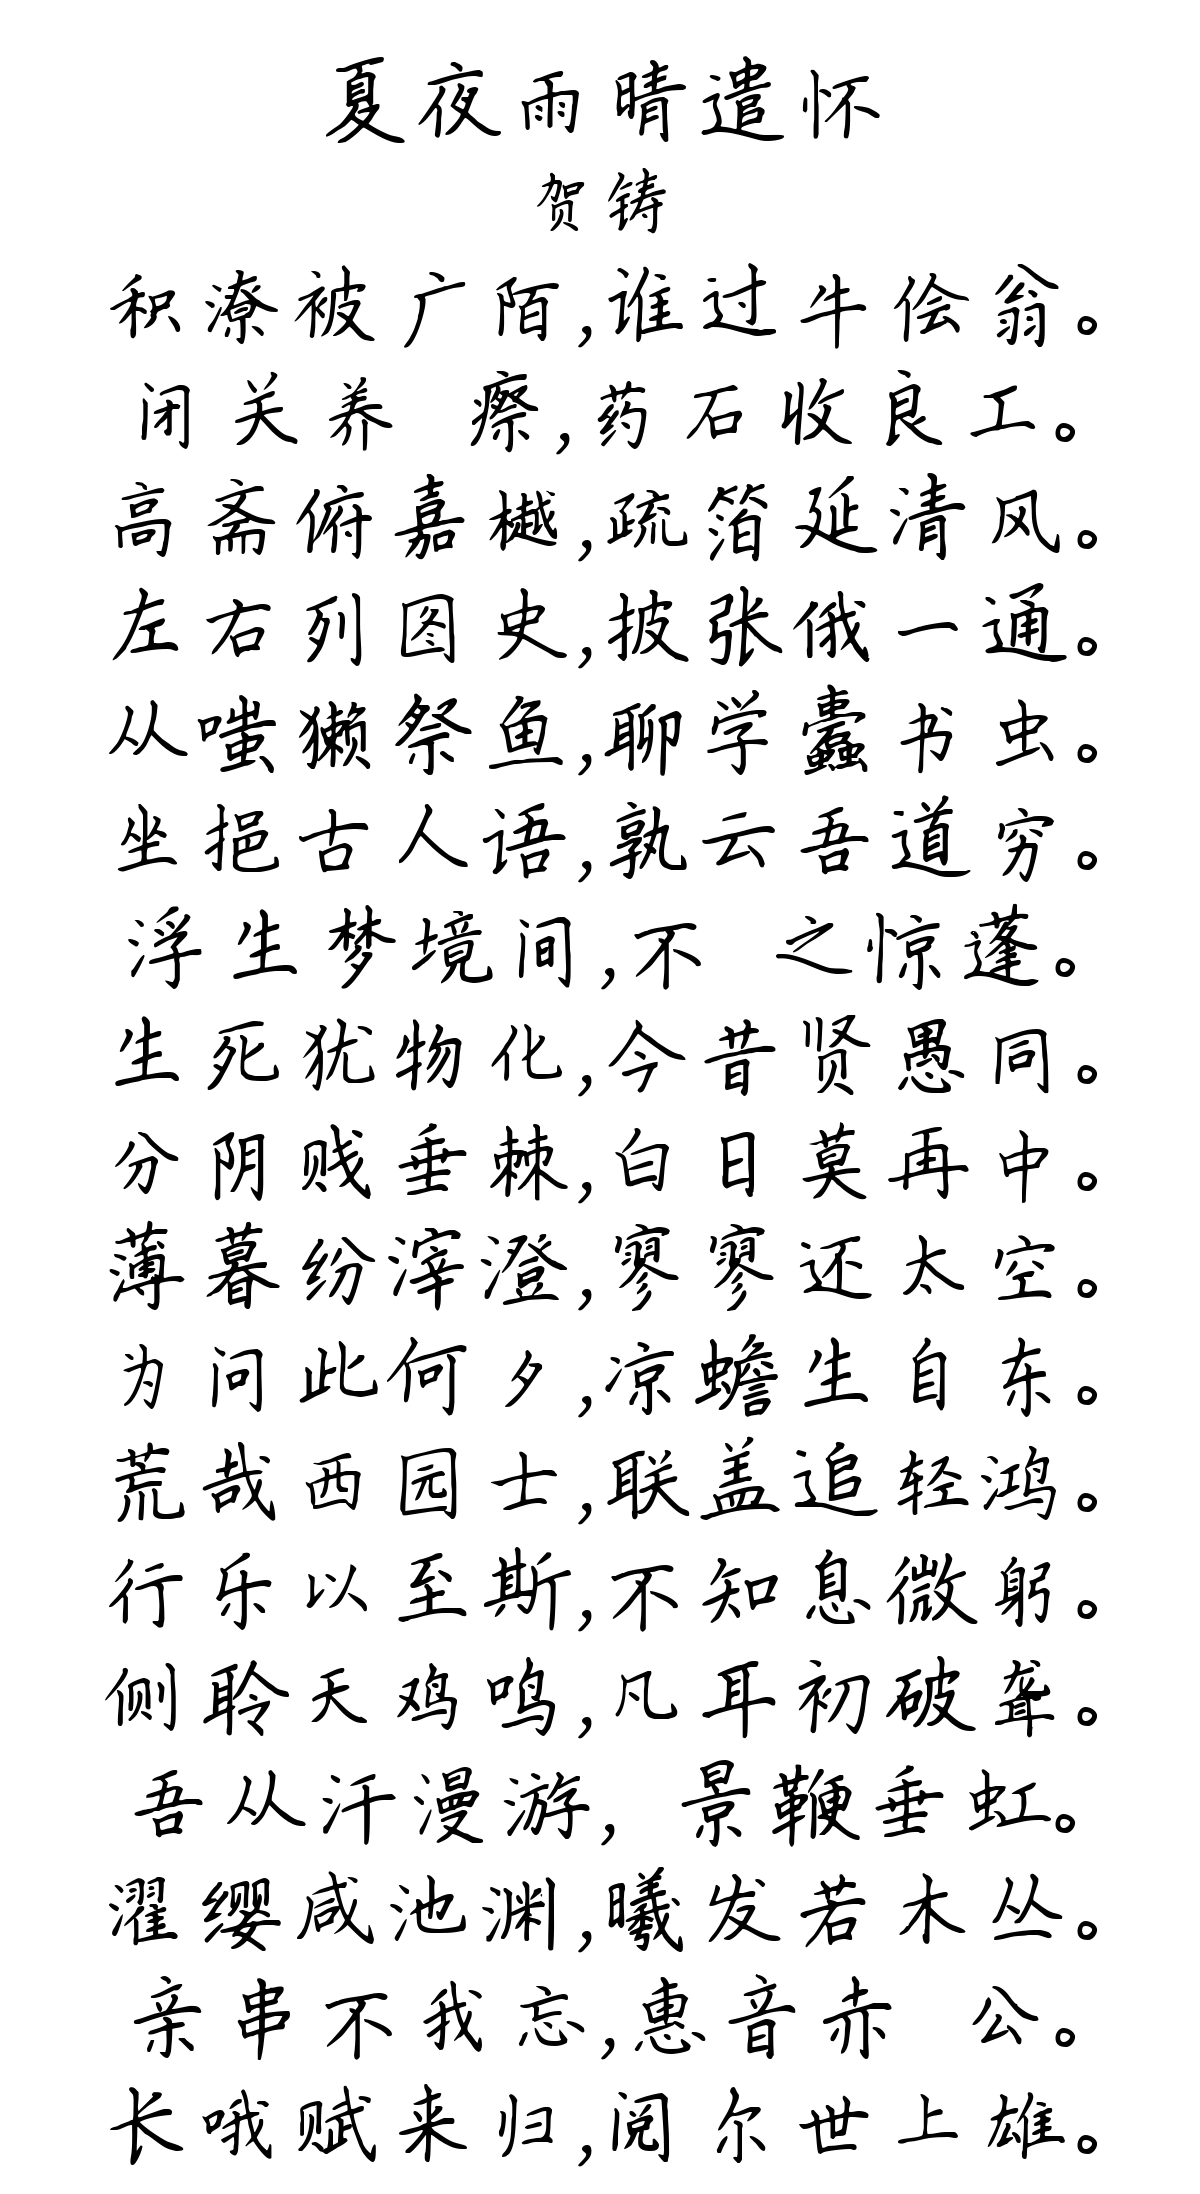 夏夜雨晴遣怀
贺铸
积潦被广陌,谁过牛侩翁。
闭关养 瘵,药石收良工。
高斋俯嘉樾,疏箔延清风。
左右列图史,披张俄一通。
从嗤獭祭鱼,聊学蠹书虫。
坐挹古人语,孰云吾道穷。
浮生梦境间,不 之惊蓬。
生死犹物化,今昔贤愚同。
分阴贱垂棘,白日莫再中。
薄暮纷滓澄,寥寥还太空。
为问此何夕,凉蟾生自东。
荒哉西园士,联盖追轻鸿。
行乐以至斯,不知息微躬。
侧聆天鸡鸣,凡耳初破聋。
吾从汗漫游, 景鞭垂虹。
濯缨咸池渊,曦发若木丛。
亲串不我忘,惠音赤 公。
长哦赋来归,阅尔世上雄。